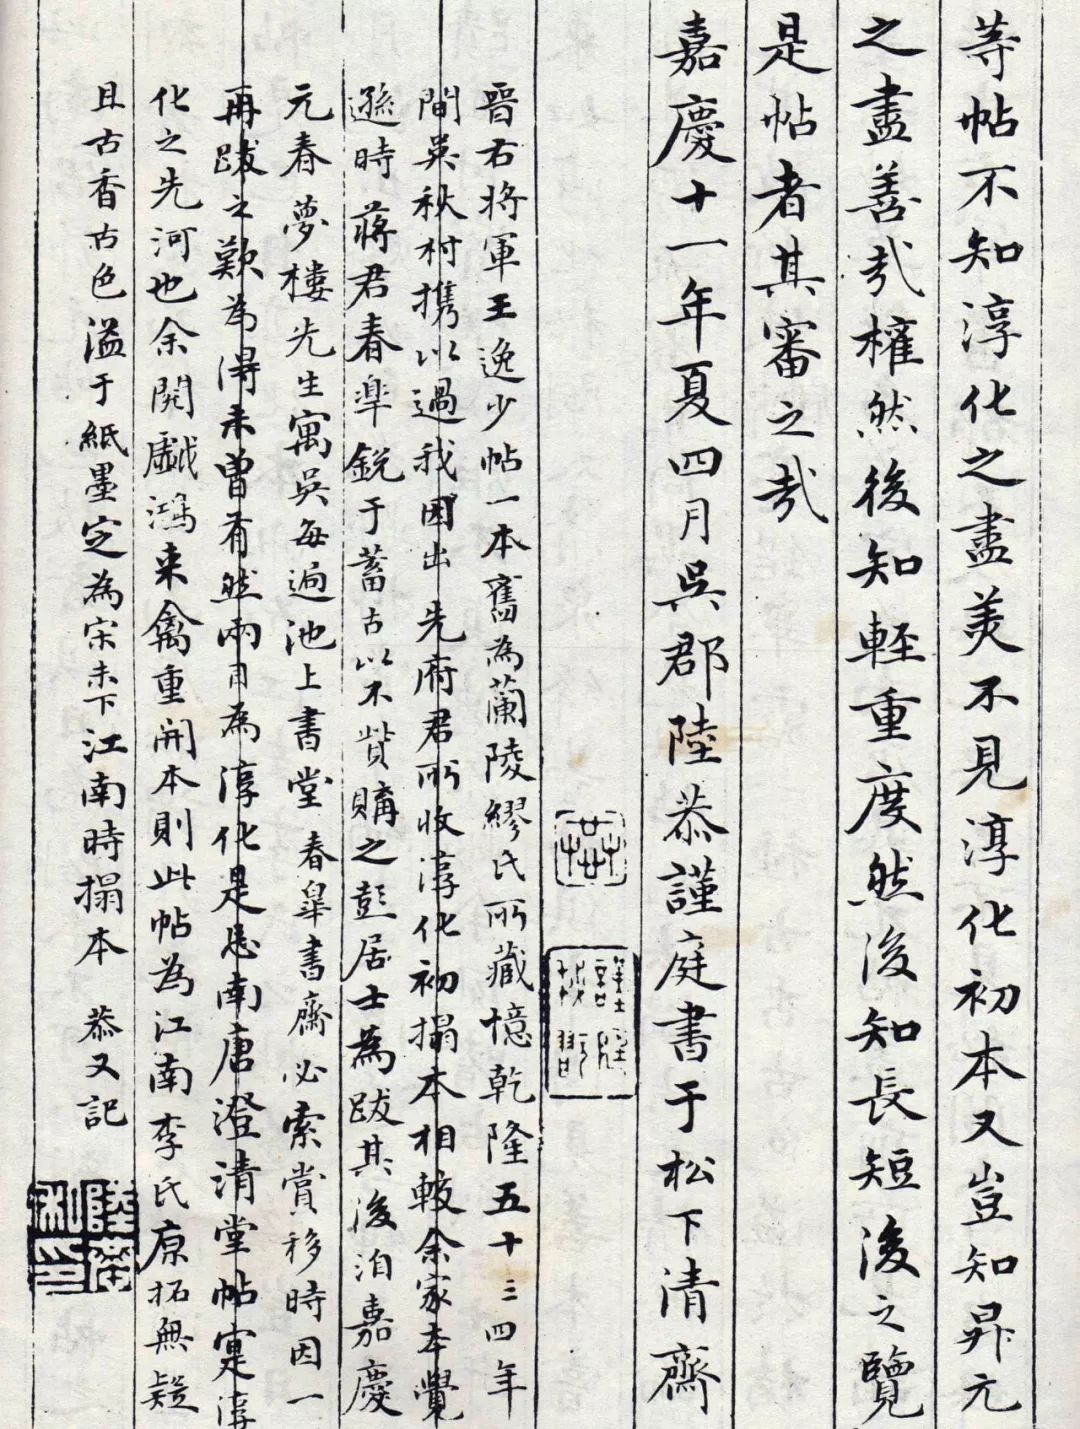 等帖不知淳化之盡美不見淳化初本又豈知昇元
之盡善哉權然後知輕重度然後知長短後之覽
是帖者其審之哉
嘉慶十一年夏四月吳郡陸恭謹庭書于松下清齋
晉右將軍王逸少帖一本舊為蘭陵繆氏所藏憶乾隆五十三四年
間吳秋村携以過我因出先府君所收淳化初搨本相較余家本覺
遜時蔣君春皐銳于蓄古以不貲購之彭居士為跋其後洎嘉慶
元春夢樓先生寓吳每過池上書堂春皐書齋必索賞移時因一
再跋之歎為淂未曾有然兩目為淳化是忘南唐澄清堂帖寔淳
化之先河也余閱戲鴻来禽重開本則此帖為江南李氏原拓無疑
且古香古色溢于紙墨定為宋未下江南時搨本 恭又記
陸恭私印